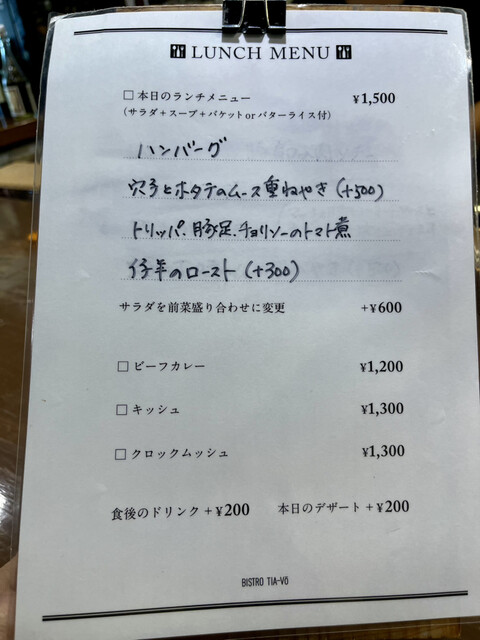 LUNCH MENU
□ 本日のランチメニュー ¥1,500
（サラダ＋スープ＋バケット or バターライス付）
ハンバーグ
穴子とホタテのムース重ねやき (+500)
トリッパ、豚足、チョリソーのトマト煮
仔羊のロースト (+300)
サラダを前菜盛り合わせに変更 +¥600
□ ビーフカレー ¥1,200
□ キッシュ ¥1,300
□ クロックムッシュ ¥1,300
食後のドリンク +¥200 本日のデザート +¥200
BISTRO TIA-VÖ